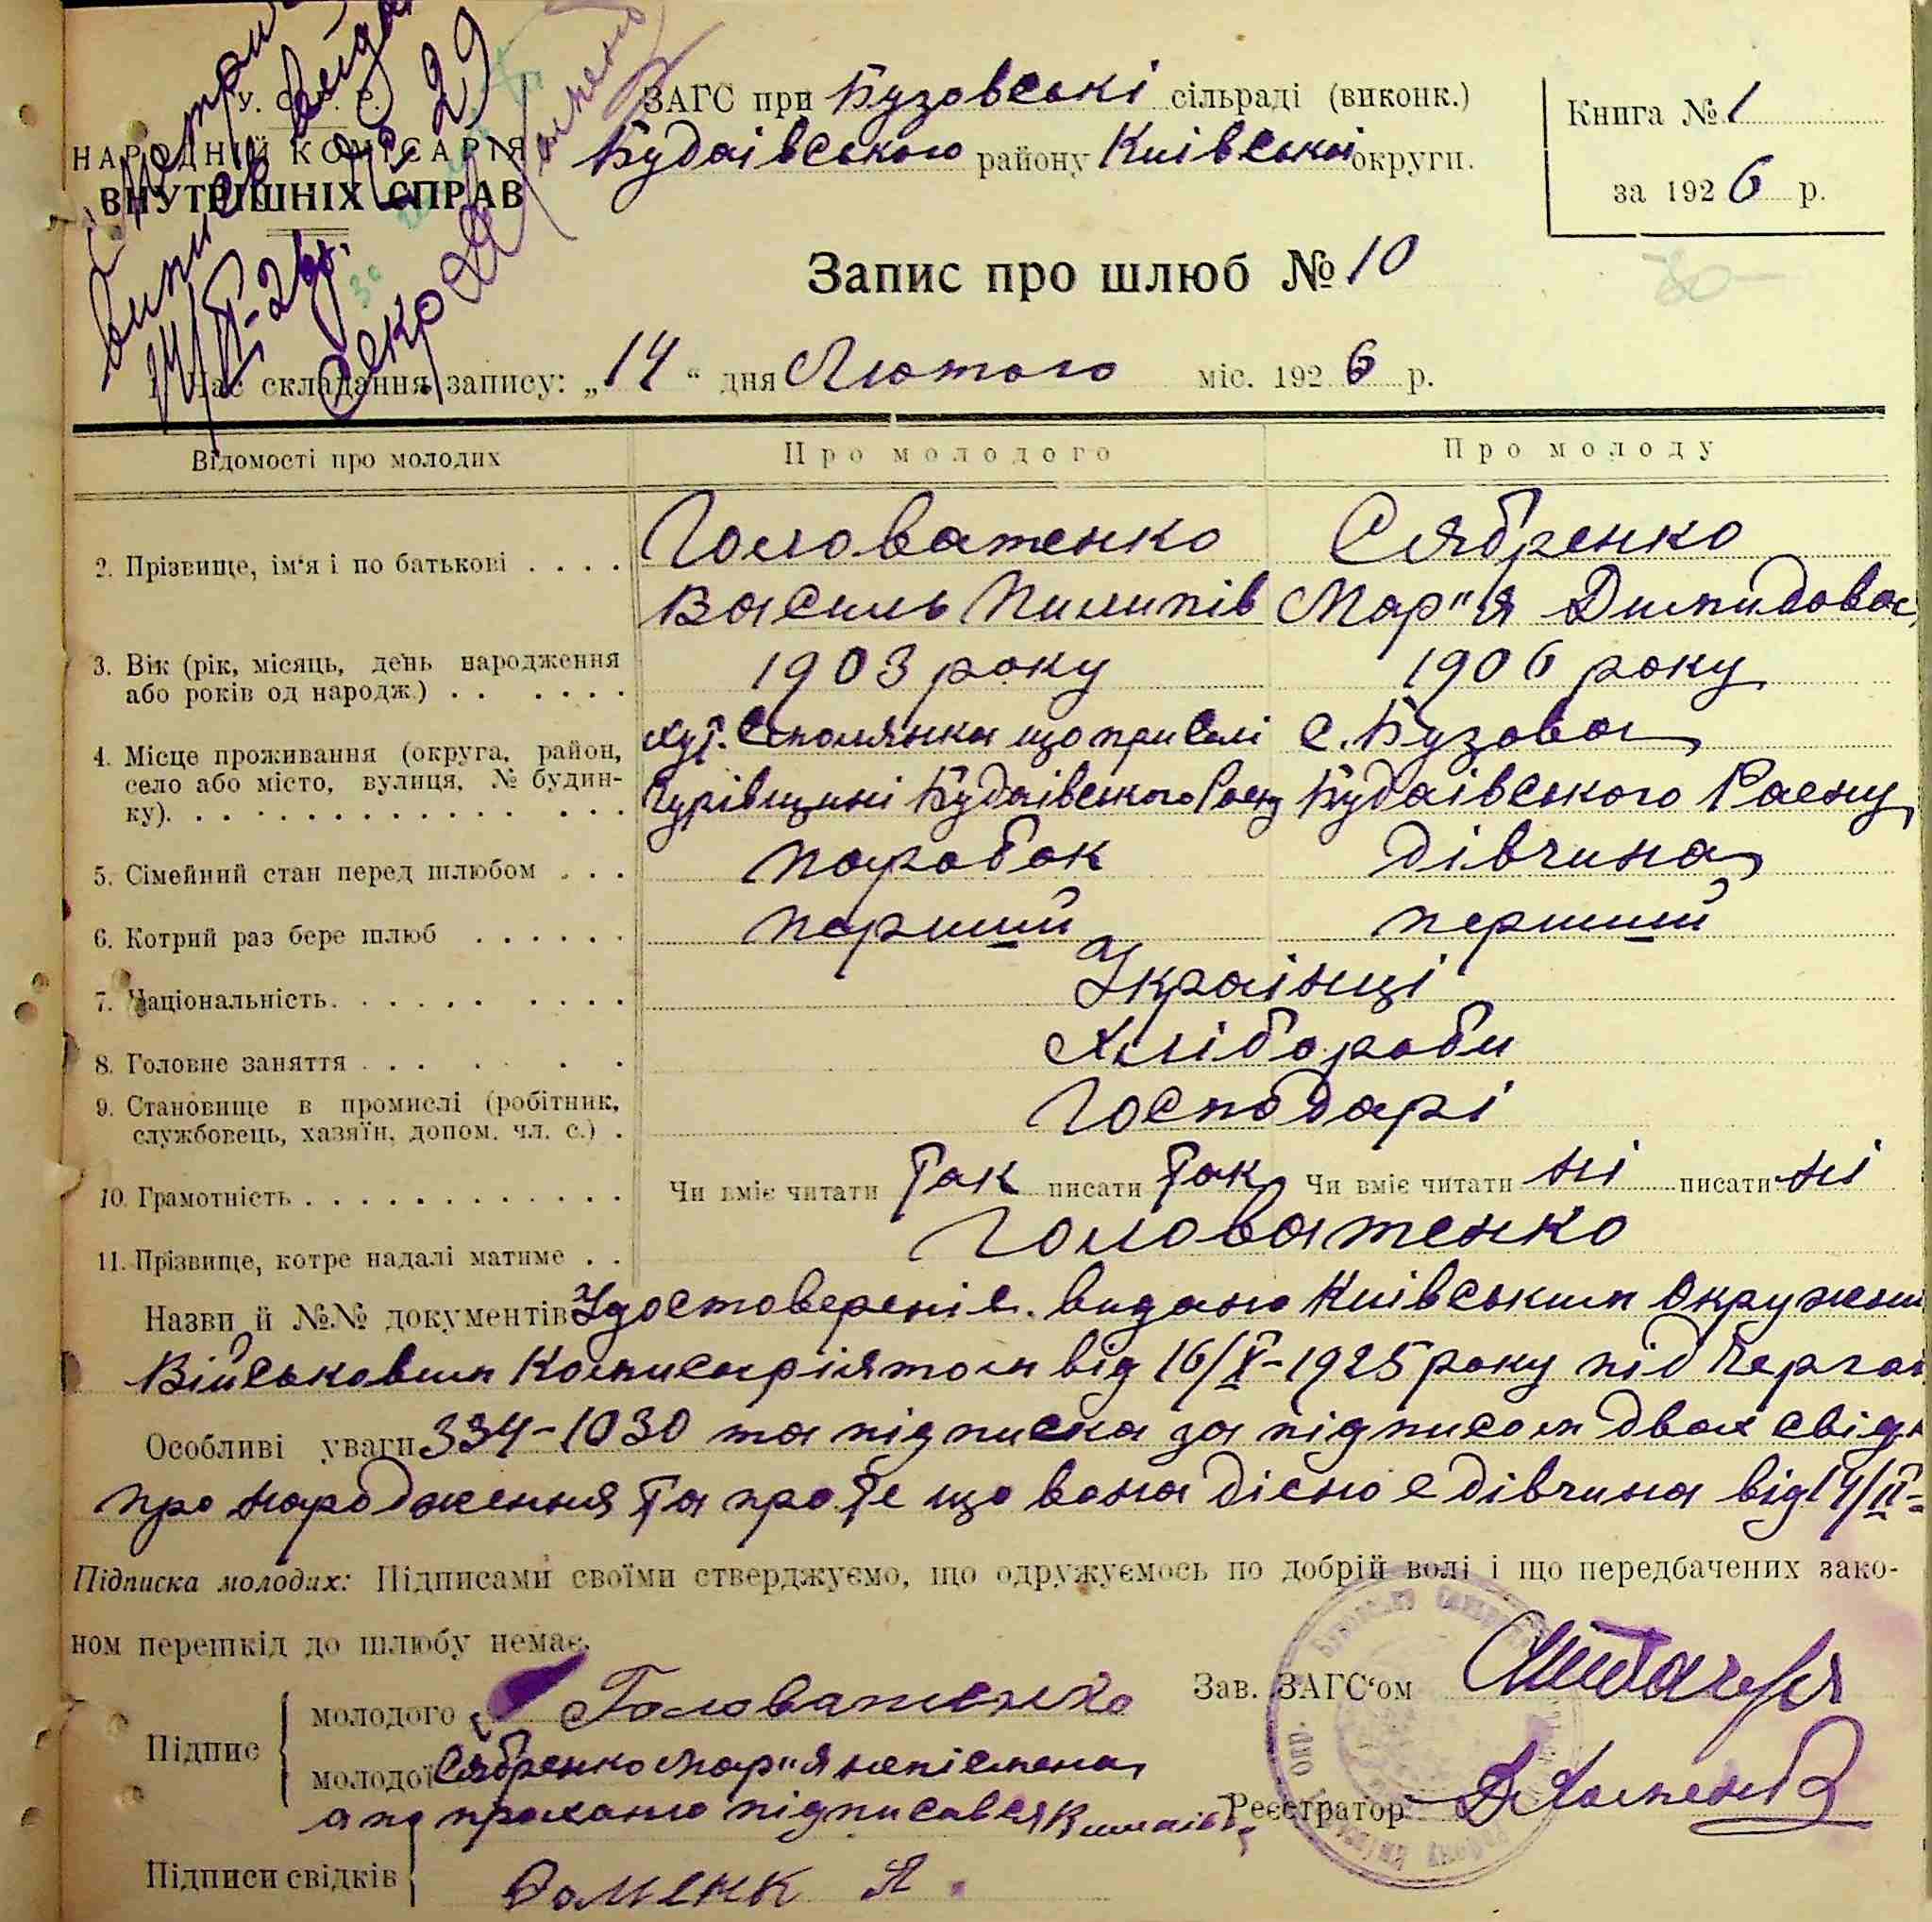 У. С. Р. Р.
НАРОДНІЙ КОМІСАРІЯТ
ВНУТРІШНІХ СПРАВ
№ 29
ЗАГС при Бузовські сільраді (виконк.)
Будаівського району Киівськоі округи.
Книга № 1
за 1926 р.
Запис про шлюб № 10
1. Час складання запису: „14“ дня Лютого міс. 1926 р.
Відомості про молодих Про молодого Про молоду
2. Прізвище, ім'я і по батькові . . . . Головатенко Сябренко
Василь Пилипів Мар"я Димидова
3. Вік (рік, місяць, день народження 1903 року 1906 року
або років од народж.) . . . . . .
4. Місце проживання (округа, район, хут. що при селі с. Бузова
село або місто, вулиця, № будин- Гурівщині Будаівського Раену Будаівського Раену
ку). . . . . . . . . . . . . . .
5. Сімейний стан перед шлюбом . . . парабок дівчина
6. Котрий раз бере шлюб . . . . . . перший перший
7. Національність. . . . . . . . . . Украінці
8. Головне заняття . . . . . . Хлібороби
9. Становище в промислі (робітник, Господарі
службовець, хазяїн, допом. чл. с.) .
10. Грамотність . . . . . . . . . . . . Чи вміє читати так писати так Чи вміє читати ні писати ні
11. Прізвище, котре надалі матиме . . Головатенко
Назви й №№ документів Удостовереніє. видано Киівським Окружним
Військовим Комисаріятом від 16/X-1925 року під Чергов
Особливі уваги 334-1030 та підписка за підписом двох свідк
про народження та про те що вона дісно є дівчина від 14/II-
Підписка молодих: Підписами своїми стверджуємо, що одружуємось по добрій волі і що передбачених зако-
ном перешкід до шлюбу немає.
Підпис молодого Головатенко
молодої Сябренко Мар"я непісмена
а по проханю підписався
Зав. ЗАГС'ом
Реєстратор
Підписи свідків